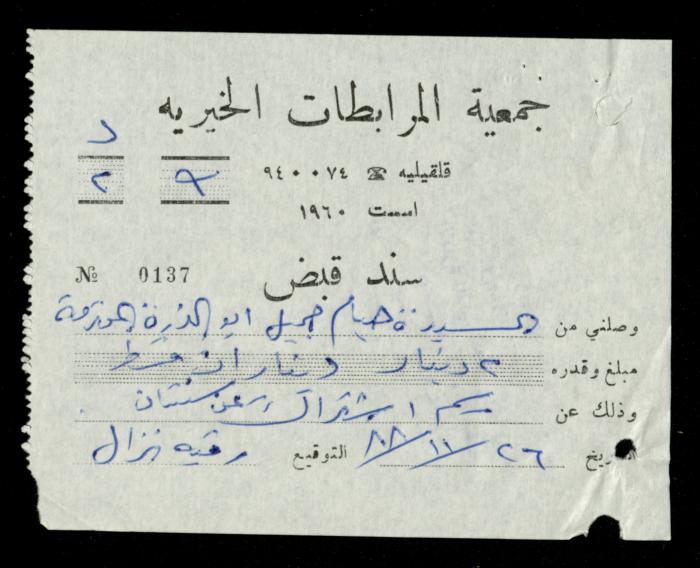 جمعية المرابطات الخيريه
قلقيليه ☎ ٩٤٠٠٧٤
اسست ١٩٦٠
د
٢
سند قبض
№ 0137
وصلني من السيدة هيام جميل ابو الذرية المحترمة
مبلغ وقدره ٢ دينار ديناران فقط
وذلك عن رسم اشتراك عن سنتان
التاريخ ٢٦/١١/٨٨ التوقيع رقيه نزال